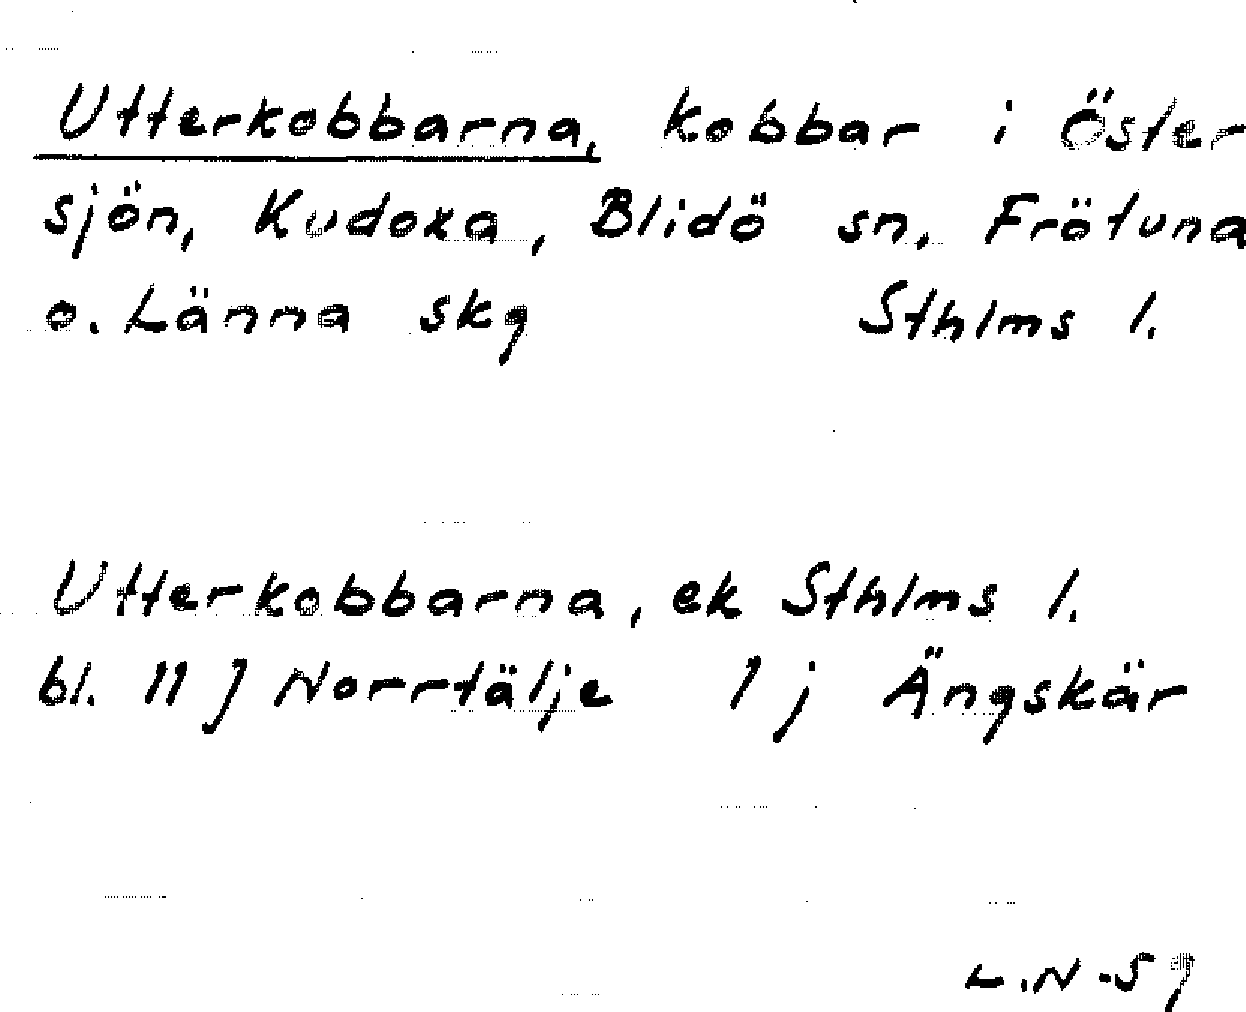 Utterkobbarna, kobbar i Öster
sjön, Kudoxa, Blidö sn, Frötuna
o. Länna skg Sthlms l.
Utterkobbarna, ek Sthlms l.
bl. 11 J Norrtälje 1 j Ängskär
L.N-59